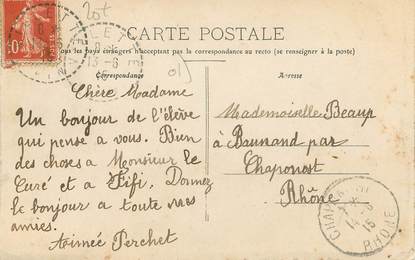 20t
CARTE POSTALE
pays étrangers n'acceptent pas la correspondance au recto (se renseigner à la poste)
Correspondance
Adresse
Chère Madame
Un bonjour de l'élève
qui pense a vous. Bien
des choses a Monsieur le
Curé et a Fifi, Donnez
le bonjour a toute mes
amies.
Aimée Perchet
Mademoiselle Beaup
à Baunand par
Chaponost
Rhône
13-6
15
RHONE